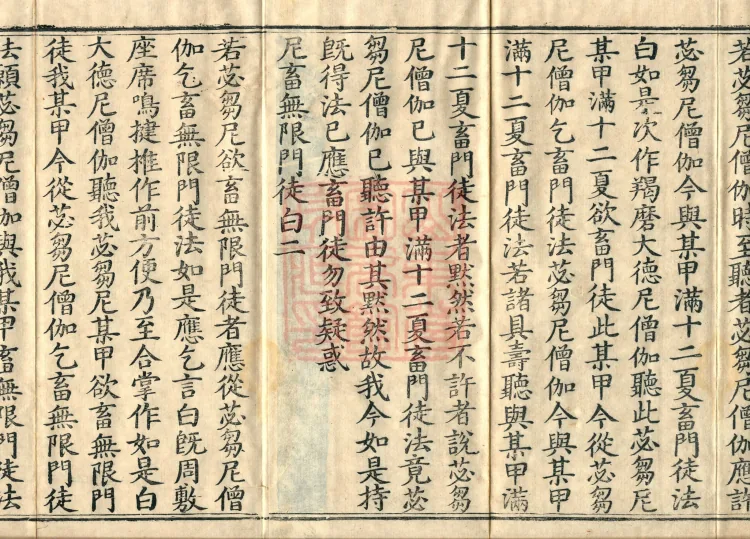 若苾芻尼僧伽時至聽者苾芻尼僧伽應許
苾芻尼僧伽今與某甲滿十二夏畜門徒法
白如是次作羯磨大德尼僧伽聽此苾芻尼
某甲滿十二夏欲畜門徒此某甲今從苾芻
尼僧伽乞畜門徒法苾芻尼僧伽今與某甲
滿十二夏畜門徒法若諸具壽聽與某甲滿
十二夏畜門徒法者默然若不許者說苾芻
尼僧伽已與某甲滿十二夏畜門徒法竟苾
芻尼僧伽已聽許由其默然故我今如是持
旣得法已應畜門徒勿致疑惑
尼畜無限門徒白二
若苾芻尼欲畜無限門徒者應從苾芻尼僧
伽乞畜無限門徒法如是應乞言白旣周敷
座席鳴揵椎作前方便乃至合掌作如是白
大德尼僧伽聽我苾芻尼某甲欲畜無限門
徒我某甲今從苾芻尼僧伽乞畜無限門徒
法願苾芻尼僧伽與我某甲畜無限門徒法